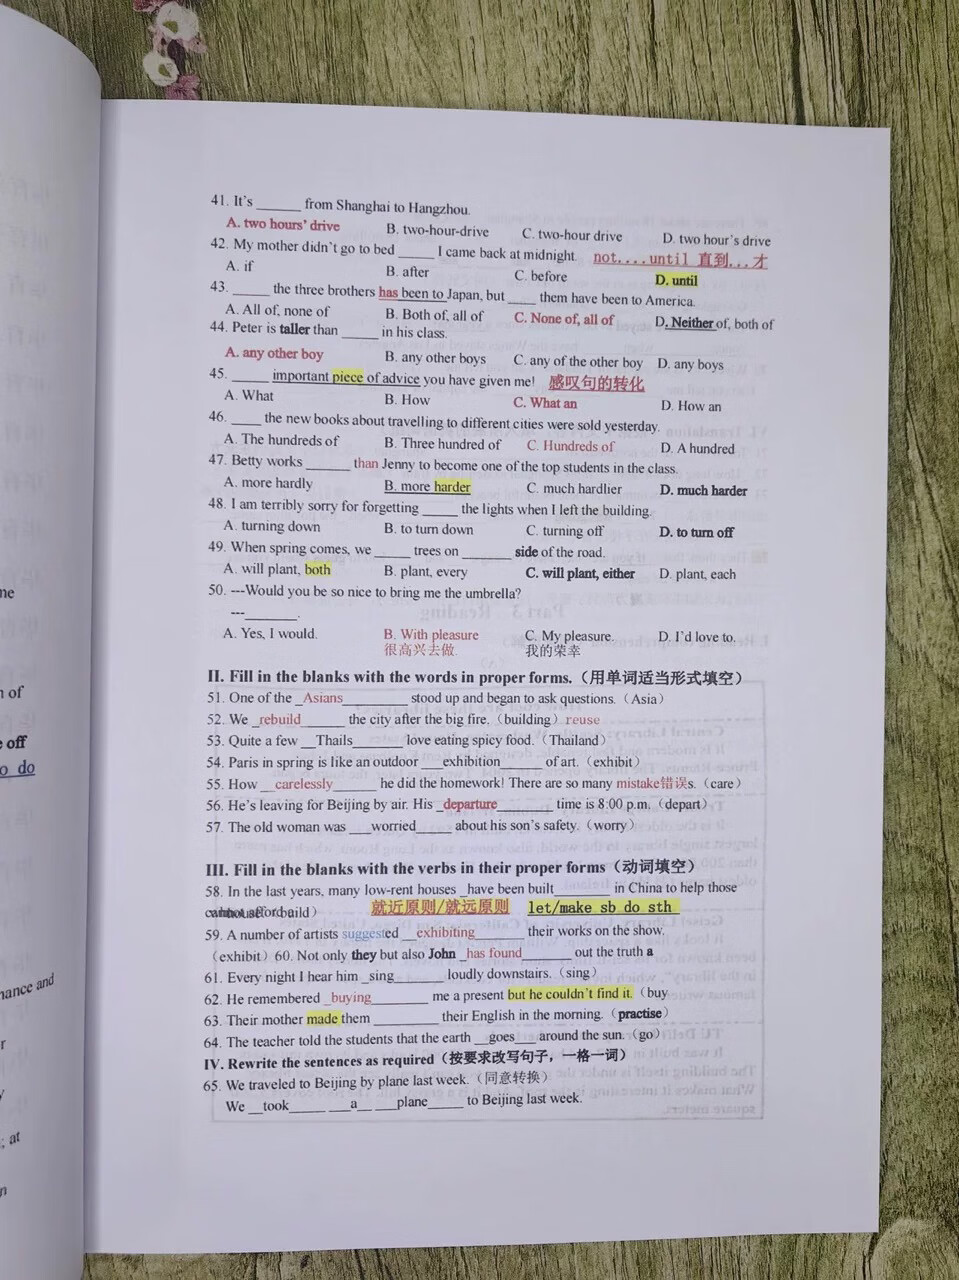 41. It's ______ from Shanghai to Hangzhou.
A. two hours' drive B. two-hour-drive C. two-hour drive D. two hour's drive
42. My mother didn't go to bed _____ I came back at midnight. not....until 直到...才
A. if B. after C. before D. until
43. _____ the three brothers has been to Japan, but ____ them have been to America.
A. All of, none of B. Both of, all of C. None of, all of D. Neither of, both of
44. Peter is taller than _____ in his class.
A. any other boy B. any other boys C. any of the other boy D. any boys
45. _____ important piece of advice you have given me! 感叹句的转化
A. What B. How C. What an D. How an
46. ____ the new books about travelling to different cities were sold yesterday.
A. The hundreds of B. Three hundred of C. Hundreds of D. A hundred
47. Betty works ______ than Jenny to become one of the top students in the class.
A. more hardly B. more harder C. much hardlier D. much harder
48. I am terribly sorry for forgetting _____ the lights when I left the building.
A. turning down B. to turn down C. turning off D. to turn off
49. When spring comes, we _____ trees on _______ side of the road.
A. will plant, both B. plant, every C. will plant, either D. plant, each
50. ---Would you be so nice to bring me the umbrella?
---_______.
A. Yes, I would. B. With pleasure C. My pleasure. D. I'd love to.
很高兴去做. 我的荣幸
II. Fill in the blanks with the words in proper forms.（用单词适当形式填空）
51. One of the _Asians_________ stood up and began to ask questions.（Asia）
52. We _rebuild______ the city after the big fire.（building）reuse
53. Quite a few __Thails_______ love eating spicy food.（Thailand）
54. Paris in spring is like an outdoor ___exhibition______ of art.（exhibit）
55. How __carelessly______ he did the homework! There are so many mistake错误s.（care）
56. He's leaving for Beijing by air. His _departure_________ time is 8:00 p.m.（depart）
57. The old woman was ___worried_____ about his son's safety.（worry）
III. Fill in the blanks with the verbs in their proper forms（动词填空）
58. In the last years, many low-rent houses _have been built________ in China to help those
build） 就近原则/就远原则 let/make sb do sth
59. A number of artists suggested __exhibiting_______ their works on the show.
（exhibit）60. Not only they but also John _has found_______ out the truth a
61. Every night I hear him _sing________ loudly downstairs.（sing）
62. He remembered _buying_________ me a present but he couldn't find it.（buy
63. Their mother made them __________ their English in the morning.（practise）
64. The teacher told the students that the earth __goes___ around the sun.（go）
IV. Rewrite the sentences as required（按要求改写句子，一格一词）
65. We traveled to Beijing by plane last week.（同意转换）
We __took______ ___a__ ___plane_____ to Beijing last week.
ne
n of
e off
o do
nance and
r
y
; at
n